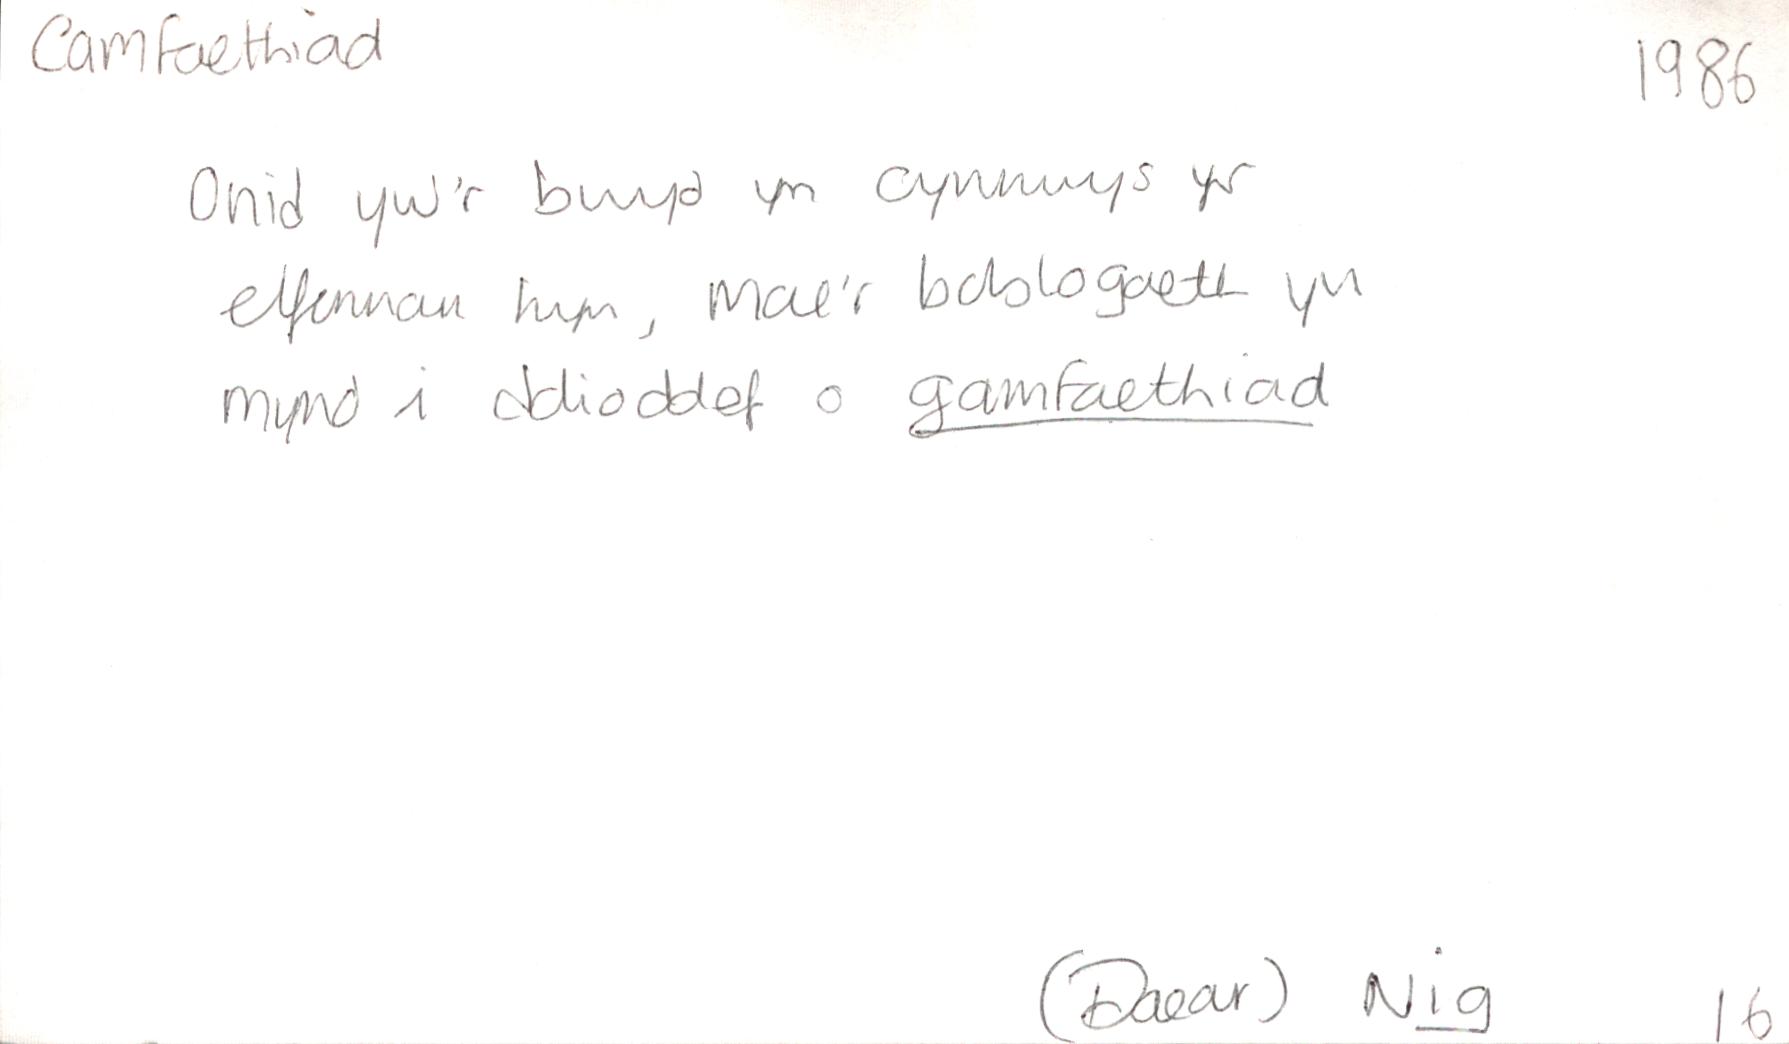 Camfaethiad 1986
Onid yw'r bwyd yn cynnwys yr
elfennau hyn, mae'r boblogaeth yn
mynd i ddioddef o gamfaethiad
(Daear) Nig 16